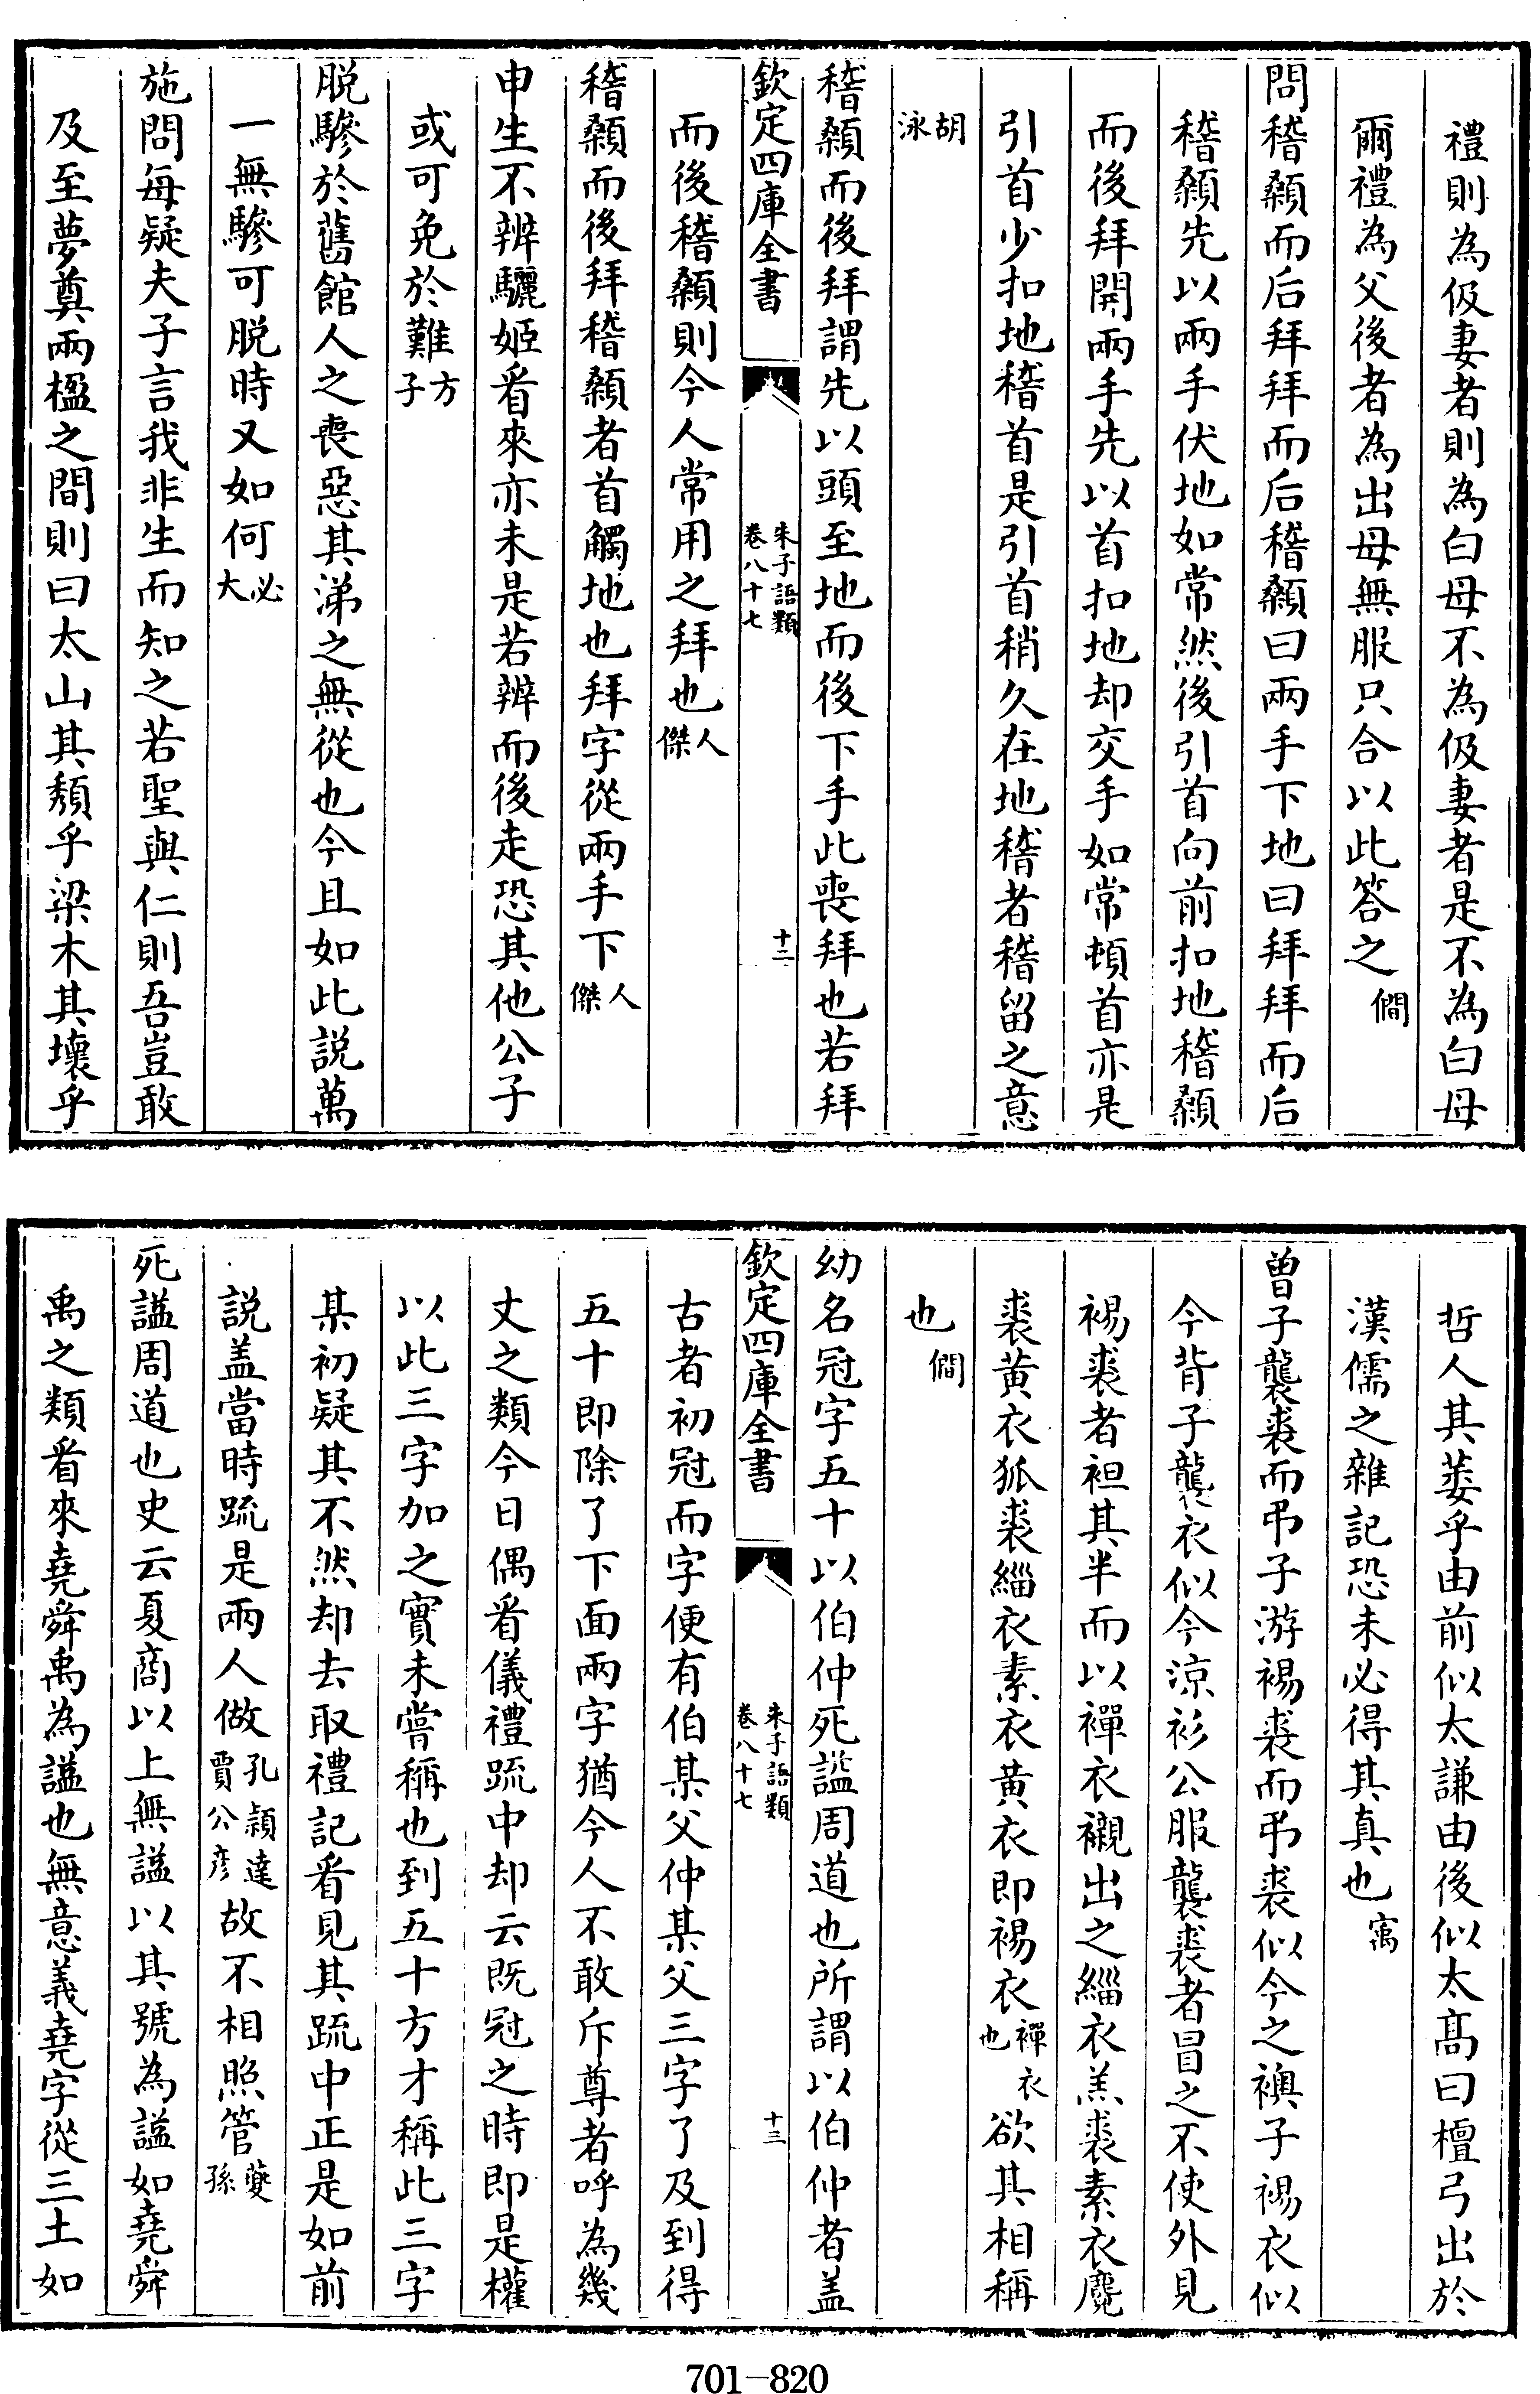 禮則為伋妻者則為白母不為伋妻者是不為白母
爾禮為父後者為出母無服只合以此答之僩
問稽顙而后拜拜而后稽顙曰兩手下地曰拜拜而后
稽顙先以兩手伏地如常然後引首向前扣地稽顙
而後拜開兩手先以首扣地却交手如常頓首亦是
引首少扣地稽首是引首稍久在地稽者稽留之意
胡泳
稽顙而後拜謂先以頭至地而後下手此喪拜也若拜
欽定四庫全書
朱子語類
卷八十七
十二
而後稽顙則今人常用之拜也人傑
稽顙而後拜稽顙者首觸地也拜字從兩手下人傑
申生不辨驪姬看來亦未是若辨而後走恐其他公子
或可免於難方子
脱驂於舊館人之喪惡其涕之無從也今且如此説萬
一無驂可脱時又如何必大
施問每疑夫子言我非生而知之若聖與仁則吾豈敢
及至夢奠兩楹之間則曰太山其頽乎梁木其壞乎
哲人其萎乎由前似太謙由後似太髙曰檀弓出於
漢儒之雜記恐未必得其真也㝢
曾子襲裘而弔子游裼裘而弔裘似今之襖子裼衣似
今背子襲衣似今涼衫公服襲裘者冒之不使外見
裼裘者袒其半而以襌衣襯出之緇衣羔裘素衣麑
裘黄衣狐裘緇衣素衣黄衣即裼衣襌衣也欲其相稱
也僩
幼名冠字五十以伯仲死諡周道也所謂以伯仲者盖
欽定四庫全書
朱子語類
卷八十七
十三
古者初冠而字便有伯某父仲某父三字了及到得
五十即除了下面兩字猶今人不敢斥尊者呼為幾
丈之類今日偶看儀禮疏中却云既冠之時即是權
以此三字加之實未嘗稱也到五十方才稱此三字
某初疑其不然却去取禮記看見其疏中正是如前
説盖當時疏是兩人做孔穎達賈公彦故不相照管䕫孫
死諡周道也史云夏商以上無諡以其號為諡如堯舜
禹之類看來堯舜禹為諡也無意義堯字從三土如
701-820